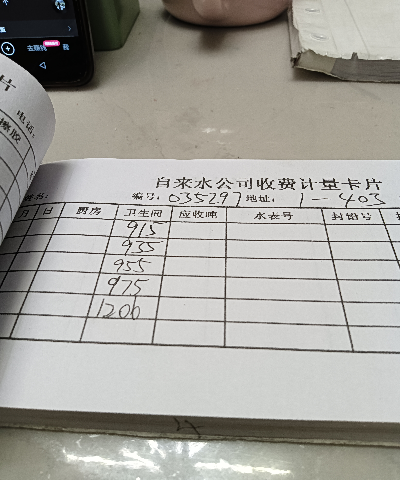 去赚钱
片
电话:
自来水公司收费计量卡片
编号: 035297 地址: 1-403
月 日 厨房 卫生间 应收吨 水表号 封铅号
915
935
955
975
1200